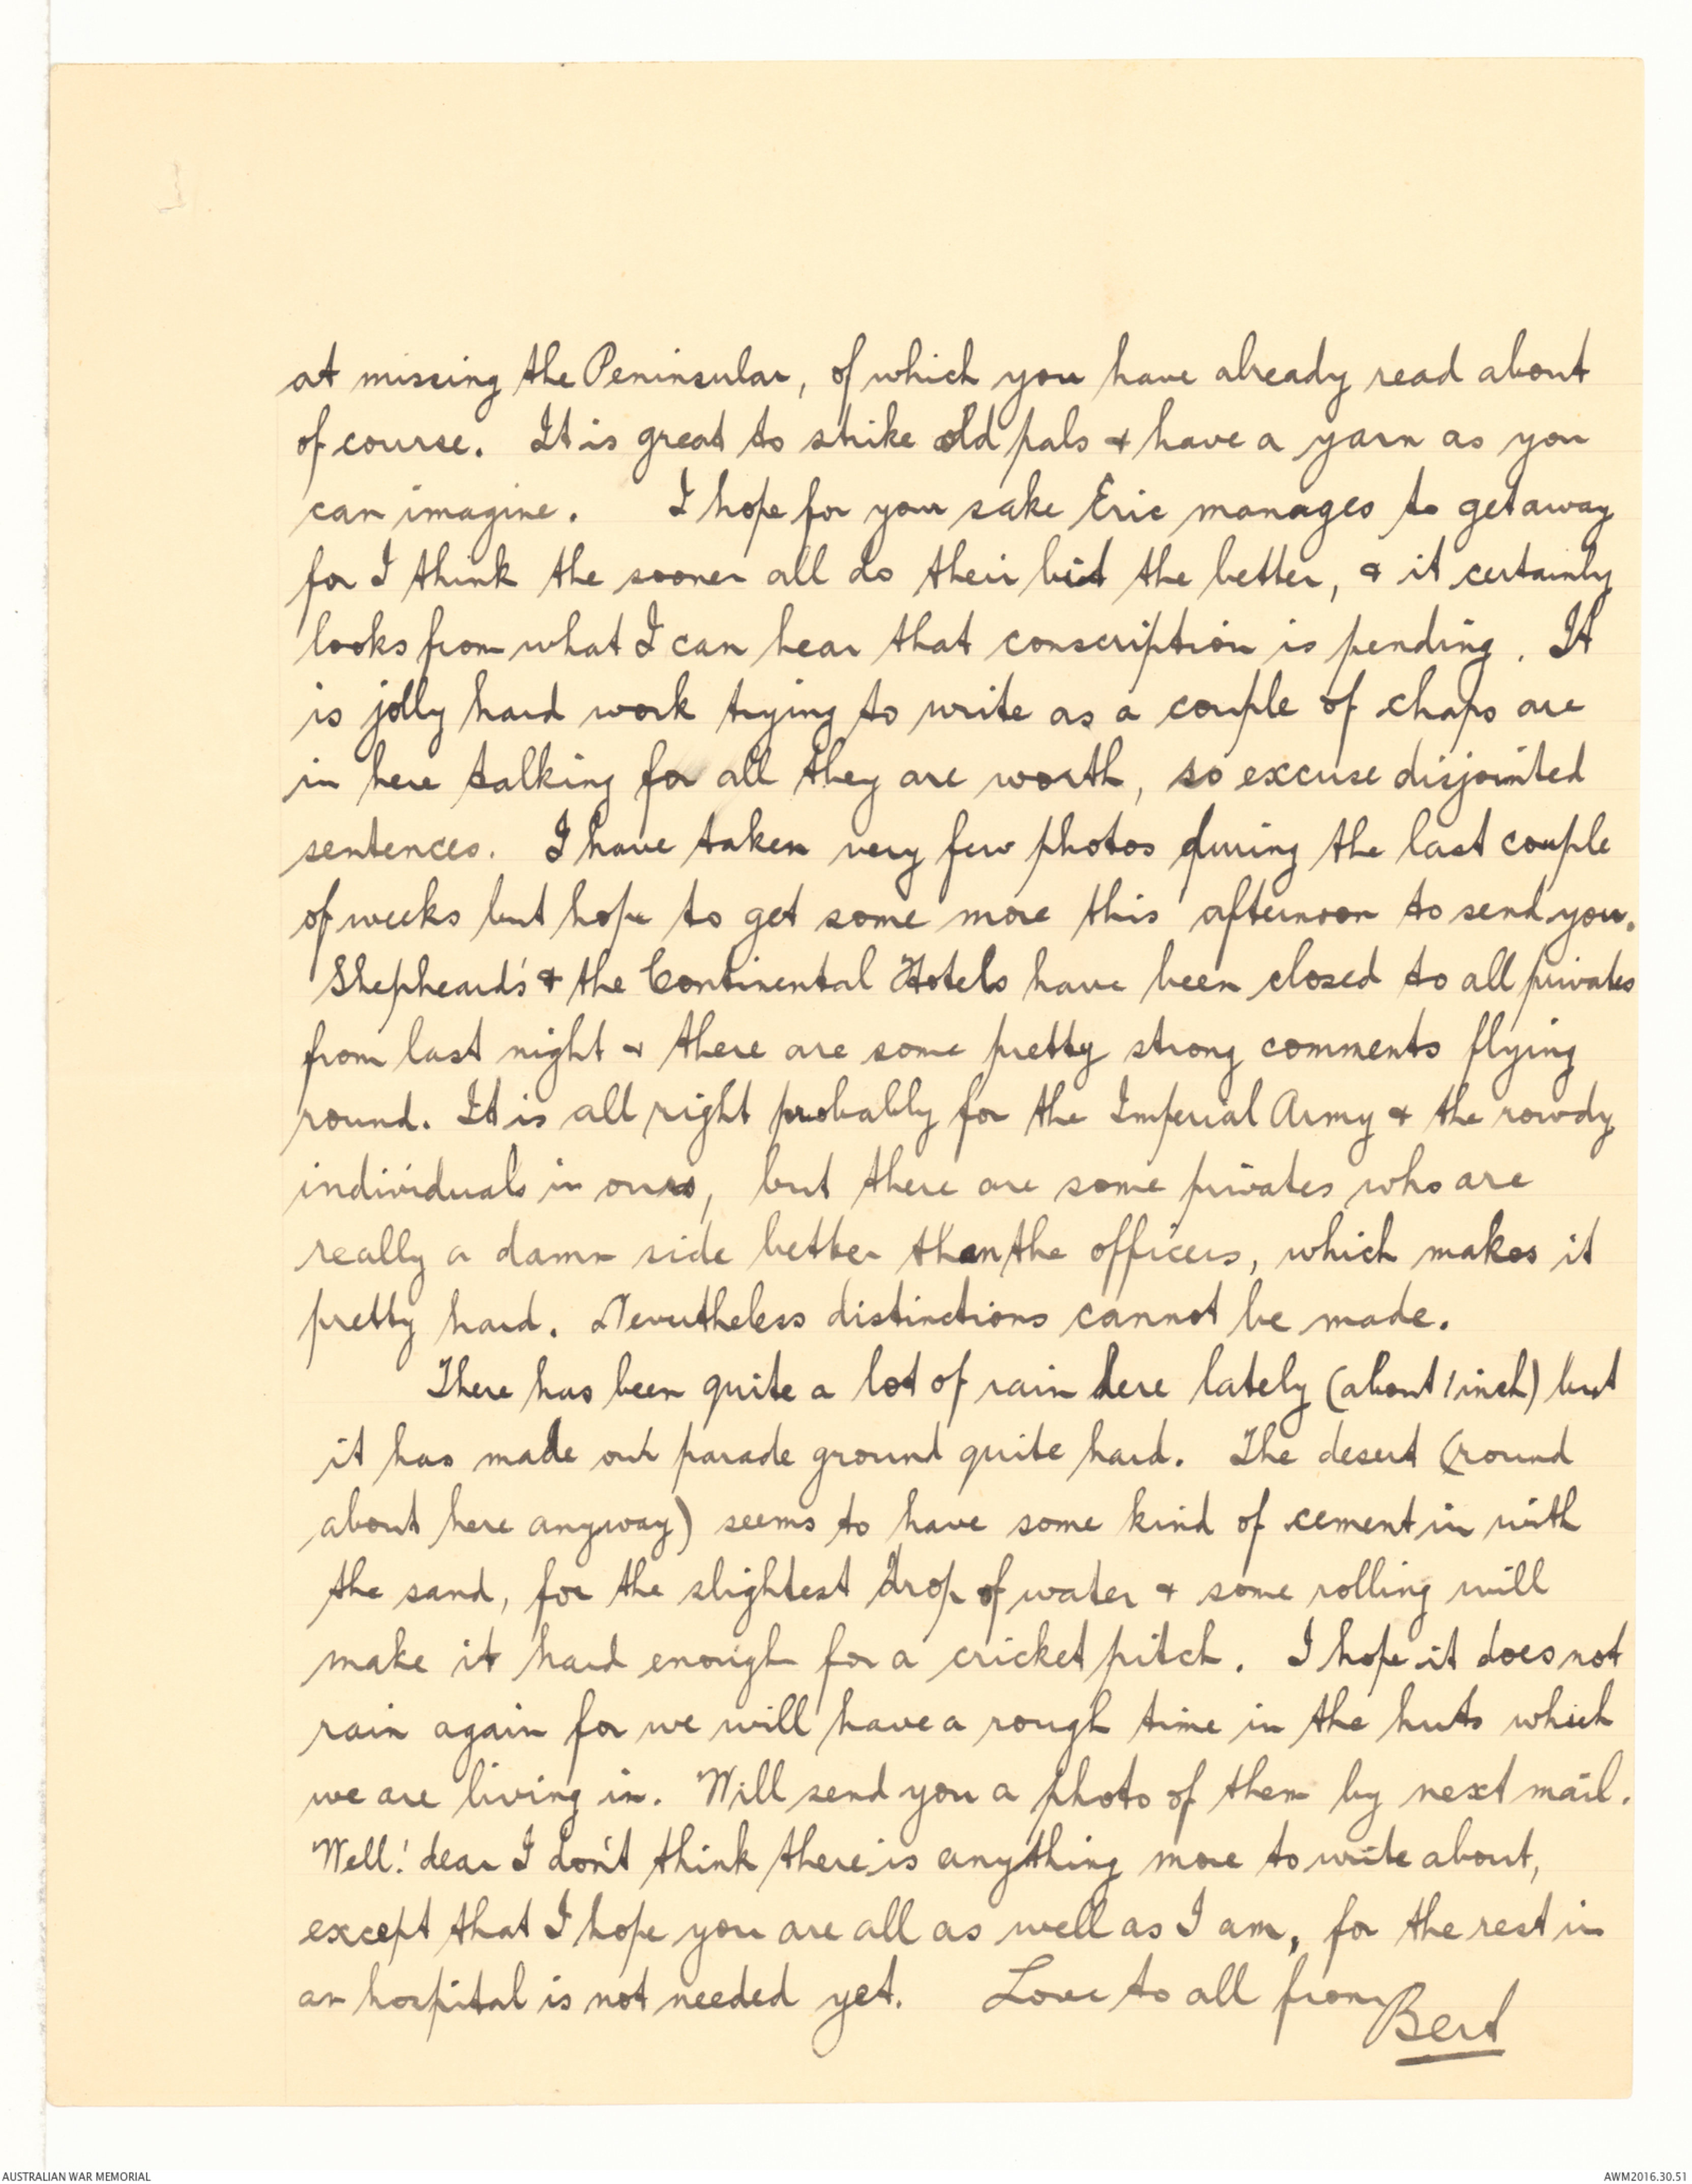 at missing the Peninsular, of which you have already read about
of course. It is great to strike old pals & have a yarn as you
can imagine. I hope for your sake Eric manages to get away
for I think the sooner all do their bit the better, & it certainly
looks from what I can hear that conscription is pending. It
is jolly hard work trying to write as a couple of chaps are
in here talking for all they are worth, so excuse disjointed
sentences. I have taken very few photos during the last couple
of weeks but hope to get some more this afternoon to send you.
Shepheard's & the Continental Hotels have been closed to all privates
from last night & there are some pretty strong comments flying
round. It is all right probably for the Imperial Army & the rowdy
individuals in ours, but there are some privates who are
really a damn side better than the officers, which makes it
pretty hard. Nevertheless distinctions cannot be made.
There has been quite a lot of rain here lately (about 1 inch) but
it has made our parade ground quite hard. The desert (round
about here anyway) seems to have some kind of cement in with
the sand, for the slightest drop of water & some rolling will
make it hard enough for a cricket pitch. I hope it does not
rain again for we will have a rough time in the huts which
we are living in. Will send you a photo of them by next mail.
Well! dear I don't think there is anything more to write about,
except that I hope you are all as well as I am, for the rest in
an hospital is not needed yet. Love to all from
Bert
AUSTRALIAN WAR MEMORIAL
AWM2016.30.51